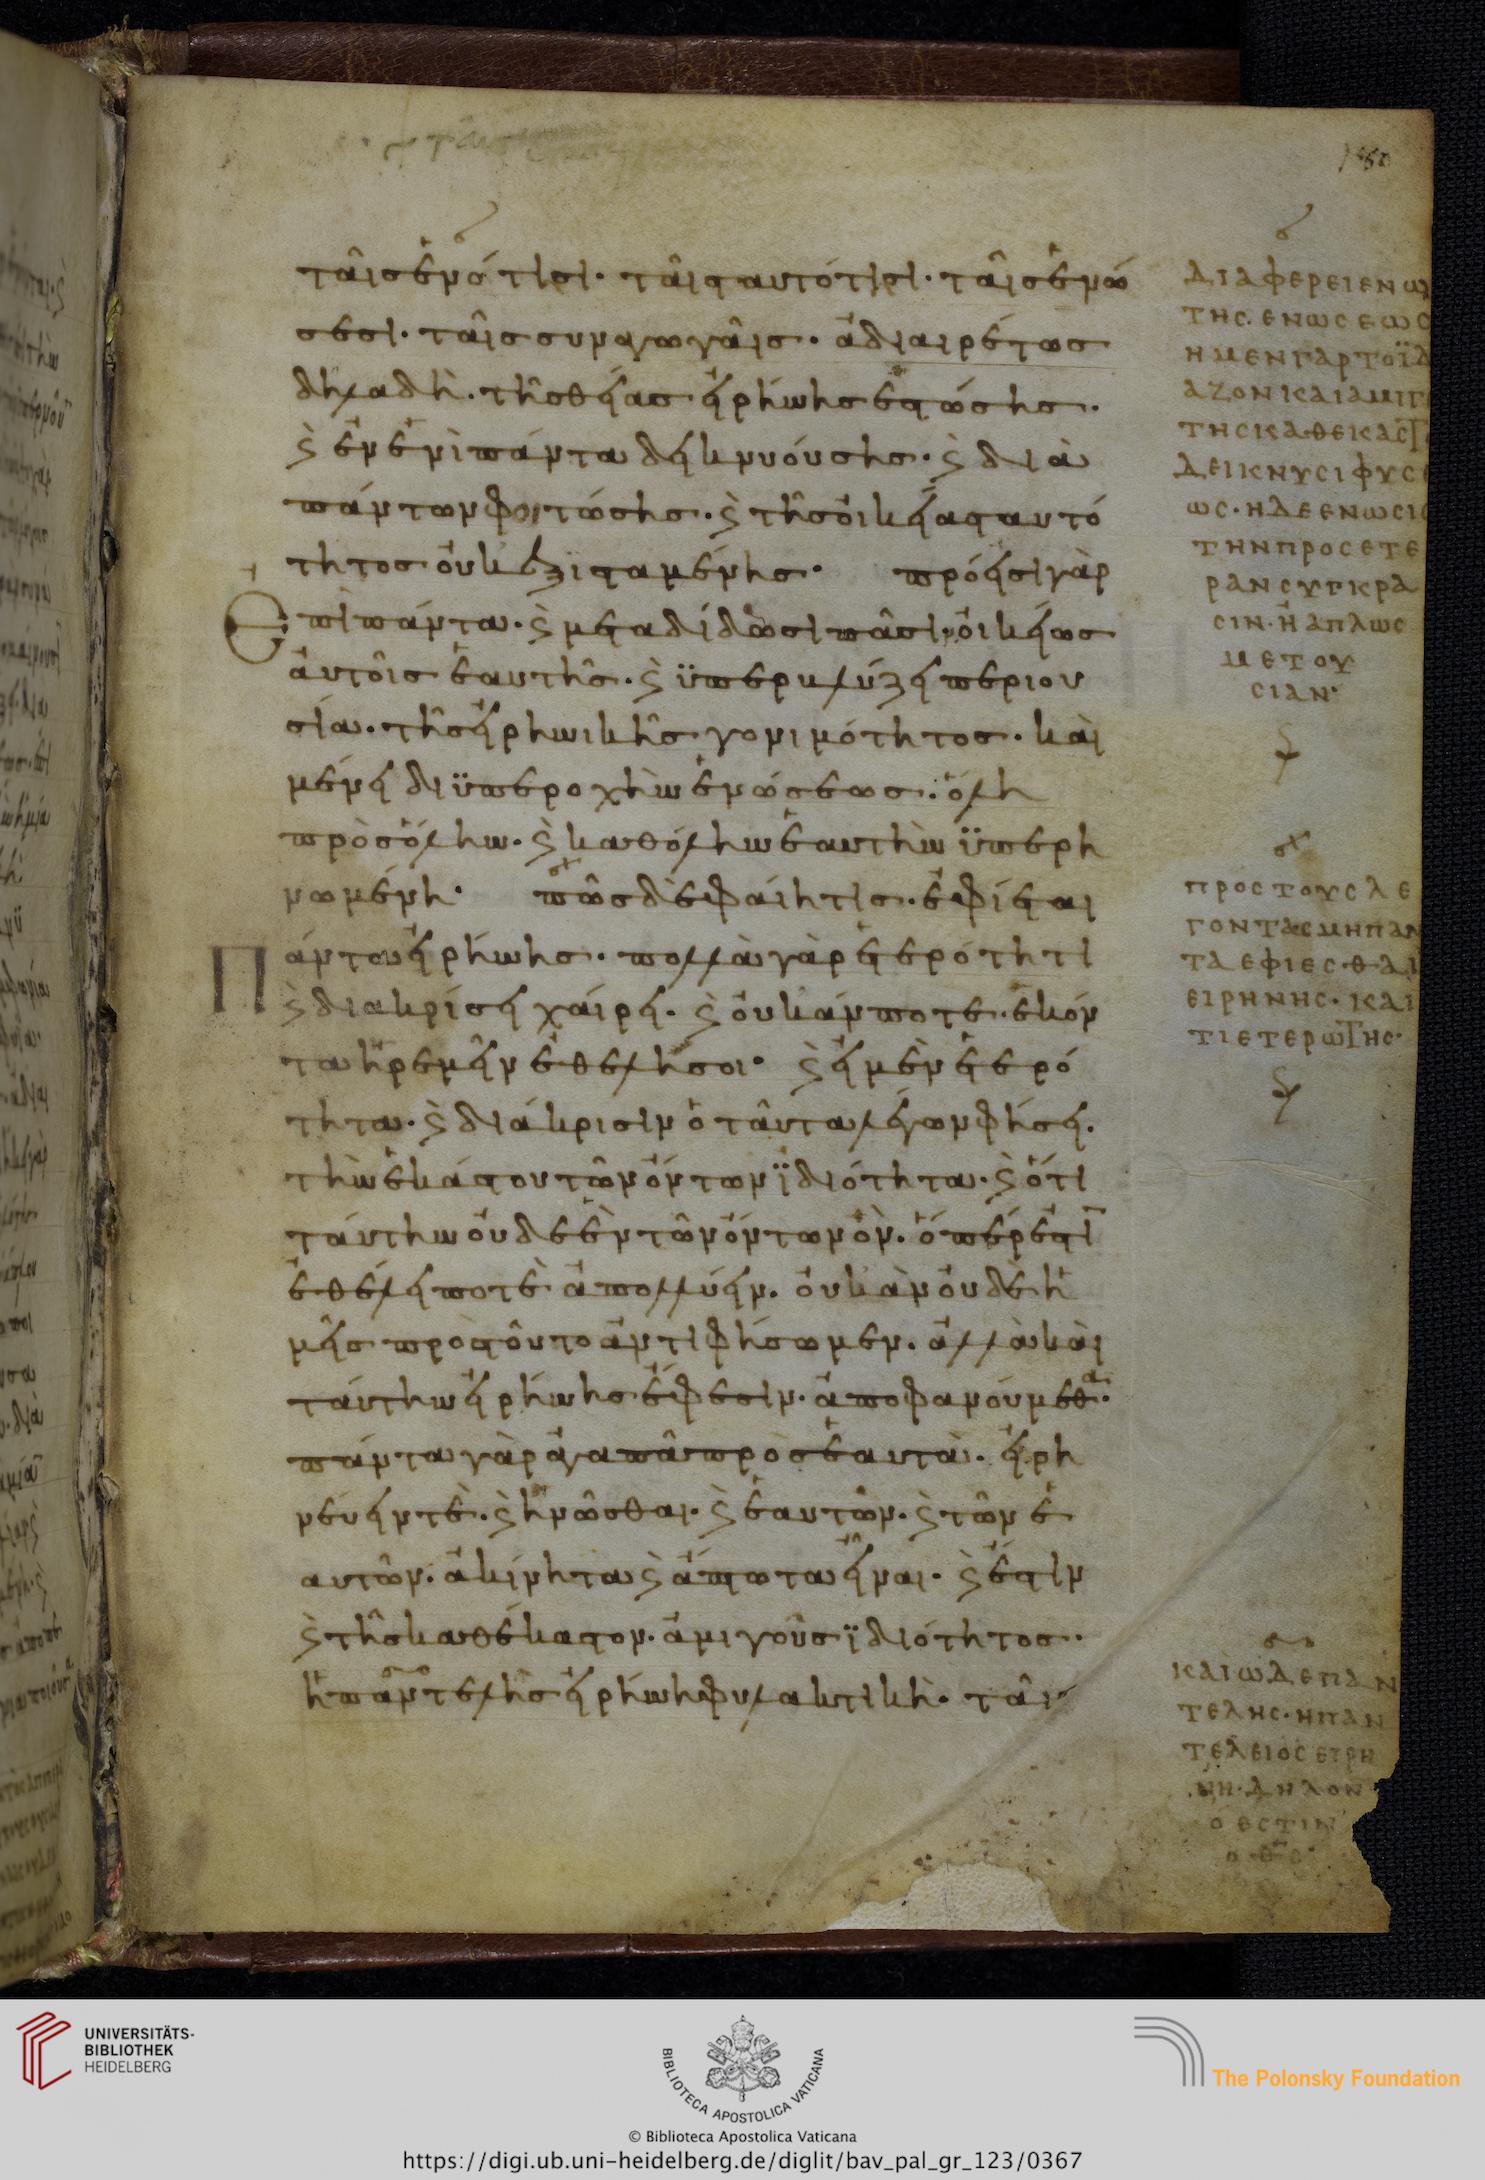 ταῖς ἑνότισι· ταῖς ταυτότισι· ταῖς ἑνώ
σεσι· ταῖς συναγωγαῖς· ἀδιαιρέτως
δηλαδὴ· τῆς θείας εἰρήνης ἑστώσης·
ϗ ἐν ἑνὶ πάντα δεικνυούσης· ϗ διὰ
πάντων φοιτώσης· ϗ τῆς οἰκείας ταυτό
τητος οὐκ ἐξισταμένης· πρόεισι γὰρ
Ἐπὶ πάντα· ϗ μεταδίδωσι πᾶσιν οἰκείως
αὐτοῖς ἑαυτῆς· ϗ ὑπερκλύζει περιου
σία· τῆς εἰρηνικῆς γονιμότητος· καὶ
μένει δι ὑπεροχὴν ἑνώσεως· ὅλη
πρὸς ὅλην· ϗ καθόλην ἑαυτὴν ὑπερη
νωμένη· πῶς δὲ φαίη τις· ἐφίεται
Πάντα εἰρήνης· πολλὰ γὰρ ἑτερότητι
ϗ διακρίσει χαίρει· ϗ οὐκ ἄν ποτε· ἑκόν
τα ἠρεμεῖν ἐθελήσοι· ϗ εἰ μὲν ἑτερό
τητα· ϗ διάκρισιν ὁ ταῦτα λέγων φήσει·
τὴν ἑκάστου τῶν ὄντων ἰδιότητα· ϗ ὅτι
ταύτην οὐδὲ ἓν τῶν ὄντων ὂν· ὅπέρ ἐστὶ
ἐθέλει ποτὲ ἀπολλύειν· οὐκ ἂν οὐδὲ ἡ
μεῖς πρὸς τοῦτο ἀντιφήσωμεν· ἀλλὰ καὶ
ταύτην εἰρήνης ἔφεσιν· ἀποφανούμεθα·
πάντα γὰρ ἀγαπᾶ πρὸς ἑαυτὰ· εἰρη
νεύειν τὲ· ϗ ἡνῶσθαι· ϗ ἑαυτῶν· ϗ τῶν ἑ
αυτῶν· ἀκίνητα ϗ ἄπτωτα εἶναι· ϗ ἔστιν
ϗ τῆς καθέκαστον· ἀμιγοῦς ἰδιότητος·
ἡ παντελὴς εἰρήνη φυλακτικὴ· ταῖς
ΔΙΑΦΕΡΕΙ ΕΝΩ
ΤΗΣ· ΕΝΩΣΕΩΣ
Η ΜΕΝ ΓΑΡ ΤΟ ΪΔ
ΑΖΟΝ ΚΑΙ ΑΜΙΓ
ΤΗΣ ΚΑΘ ΕΚΑΣΤ
ΔΕΙΚΝΥΣΙ ΦΥΣ
ΩΣ· Η ΔΕ ΕΝΩΣΙ
ΤΗΝ ΠΡΟΣ ΕΤΕ
ΡΑΝ ΣΥΓΚΡΑ
ΣΙΝ· Ἢ ΑΠΛΩΣ
ΜΕΤΟΥ
ΣΙΑΝ·
ΠΡΟΣ ΤΟΥΣ ΛΕ
ΓΟΝΤΑΣ ΜΗ ΠΑΝ
ΤΑ ΕΦΙΕΣΘΑΙ
ΕΙΡΗΝΗΣ· ΚΑΙ
ΤΙ ΕΤΕΡΩΤΗΣ·
ΚΑΙ ΩΔΕ ΠΑΝ
ΤΕΛΗΣ· Η ΠΑΝ
ΤΕΛΕΙΟΣ ΕΙΡΗ
ΝΗ· ΔΗΛΟΝ
Ο ΕΣΤΙΝ
Ο ΘΣ·
UNIVERSITÄTS-
BIBLIOTHEK
HEIDELBERG
BIBLIOTECA APOSTOLICA VATICANA
The Polonsky Foundation
© Biblioteca Apostolica Vaticana
https://digi.ub.uni-heidelberg.de/diglit/bav_pal_gr_123/0367